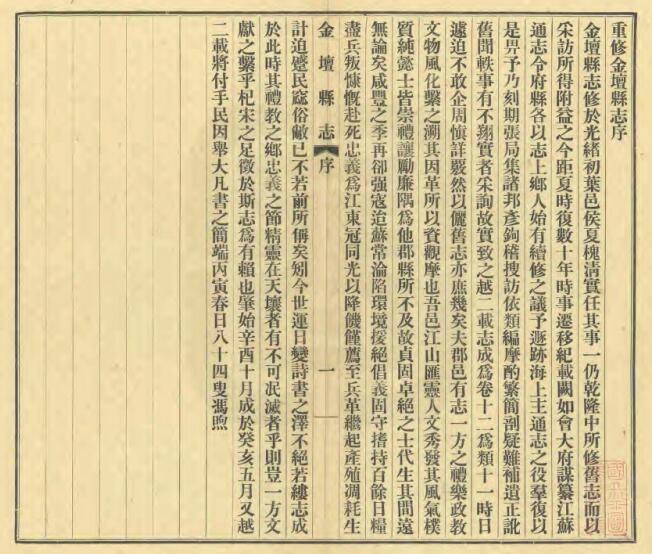 重修金壇縣志序
金壇縣志修於光緒初葉邑侯夏槐清實任其事一仍乾隆中所修舊志而以
采訪所得附益之今距夏時復數十年時事遷移紀載闕如會大府謀纂江蘇
通志令府縣各以志上鄉人始有續修之議予遯跡海上主通志之役羣復以
是畀予乃刻期張局集諸邦彥鉤稽搜訪依類編摩酌繁簡剖疑難補遺正訛
舊聞軼事有不翔實者采詢故實致之越二載志成爲卷十二爲類十一時日
遽迫不敢企周愼詳覈然以儷舊志亦庶幾矣夫郡邑有志一方之禮樂政教
文物風化繫之溯其因革所以資觀摩也吾邑江山匯靈人文秀發其風氣樸
質純懿士皆崇禮讓勵廉隅爲他郡縣所不及故貞固卓絕之士代生其間遠
無論矣咸豐之季再卻强寇迨蘇常淪陷環境援絕倡義固守搘持百餘日糧
盡兵叛慷慨赴死忠義爲江東冠同光以降饑饉薦至兵革繼起產殖凋耗生
金壇縣志 序 一
計迫蹙民窳俗敝已不若前所偁矣矧今世運日變詩書之澤不絕若縷志成
於此時其禮教之鄉忠義之節精靈在天壤者有不可泯滅者乎則豈一方文
獻之繫乎杞宋之足徵於斯志爲有賴也肇始辛酉十月成於癸亥五月又越
二載將付手民因舉大凡書之簡端丙寅春日八十四叟馮煦